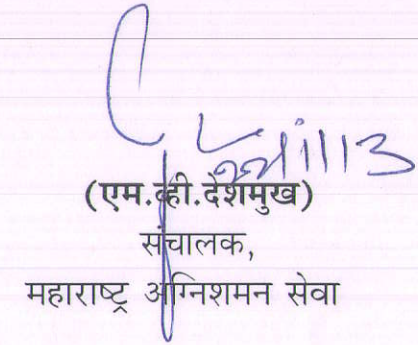 (एम.व्ही.देशमुख)
संचालक,
महाराष्ट्र अग्निशमन सेवा